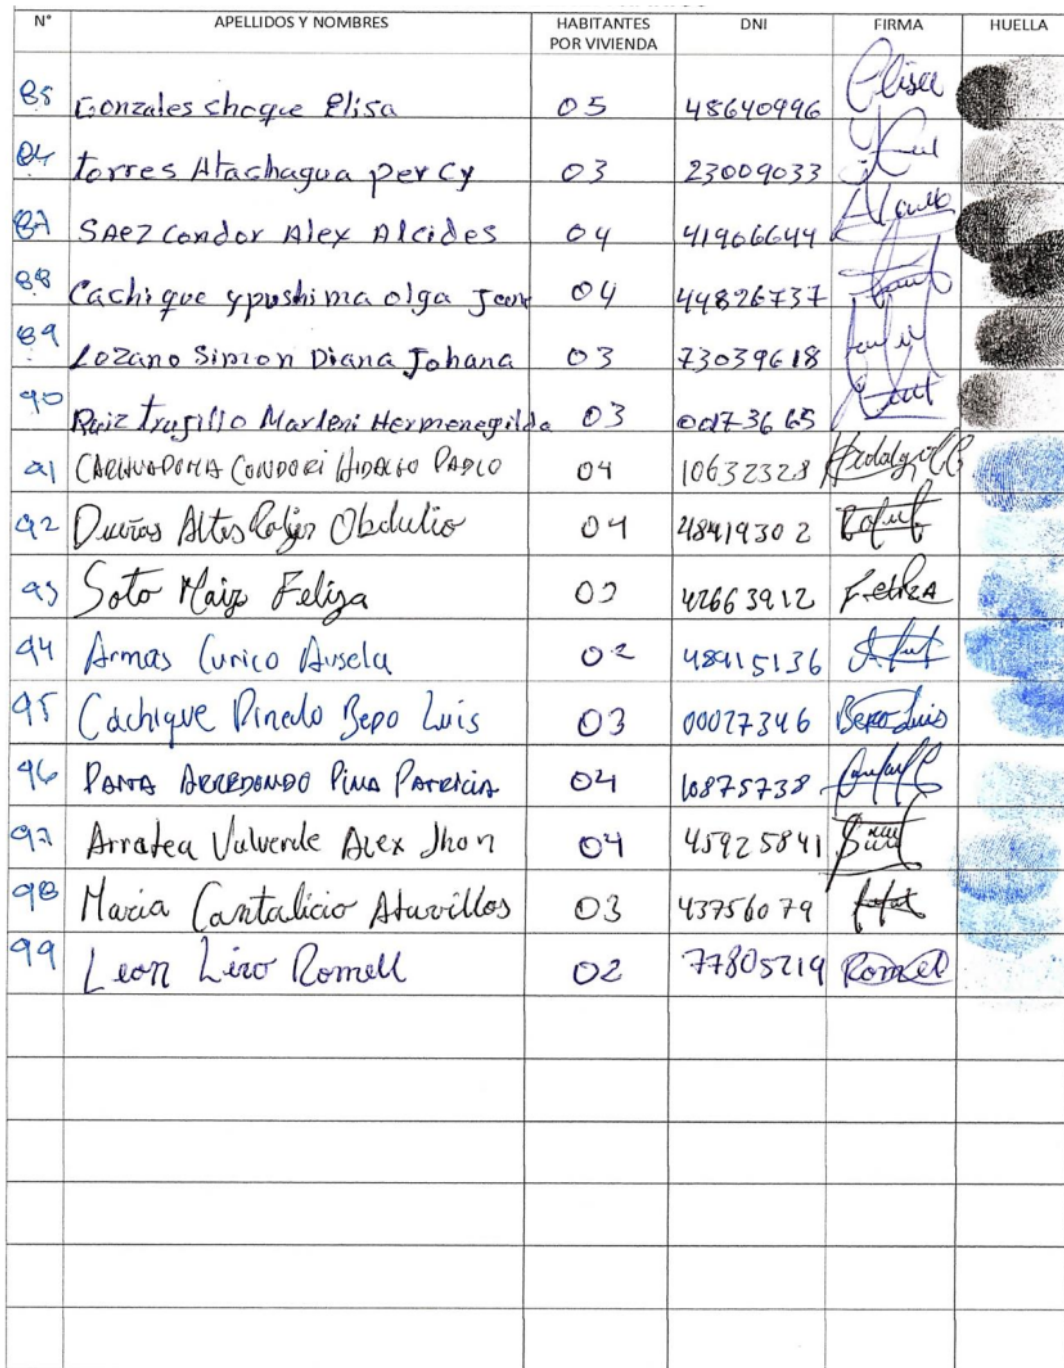 N° APELLIDOS Y NOMBRES HABITANTES POR VIVIENDA DNI FIRMA HUELLA
85 Gonzales choque Elisa 05 48640996 Elisa
torres Atachagua percy 03 23009033
87 SAez Condor Alex Alcides 04 41966644
88 Cachique ypushima olga 04 44826737
89 Lozano Simon Diana Johana 03 73039618
90 Ruiz trugillo Marleni Hermenegilda 03
91 CONDORI HIDALGO PABLO 04 10632328
92 Obdulio 04 48419302
93 Soto Feliza 42663912 Feliza
94 Armas Curico Ausela 02 48415136
95 Cachique Pinedo Bepo Luis 03 00027346 Bepo Luis
96 PANTA ARREDONDO PINA PATRICIA 04 10875738
97 Arratea Valverde Alex Jhon 04 45925841
98 Maria Cantalicio Atavillos 03 43756079
99 Leon Lino Romell 02 77805219 Romel